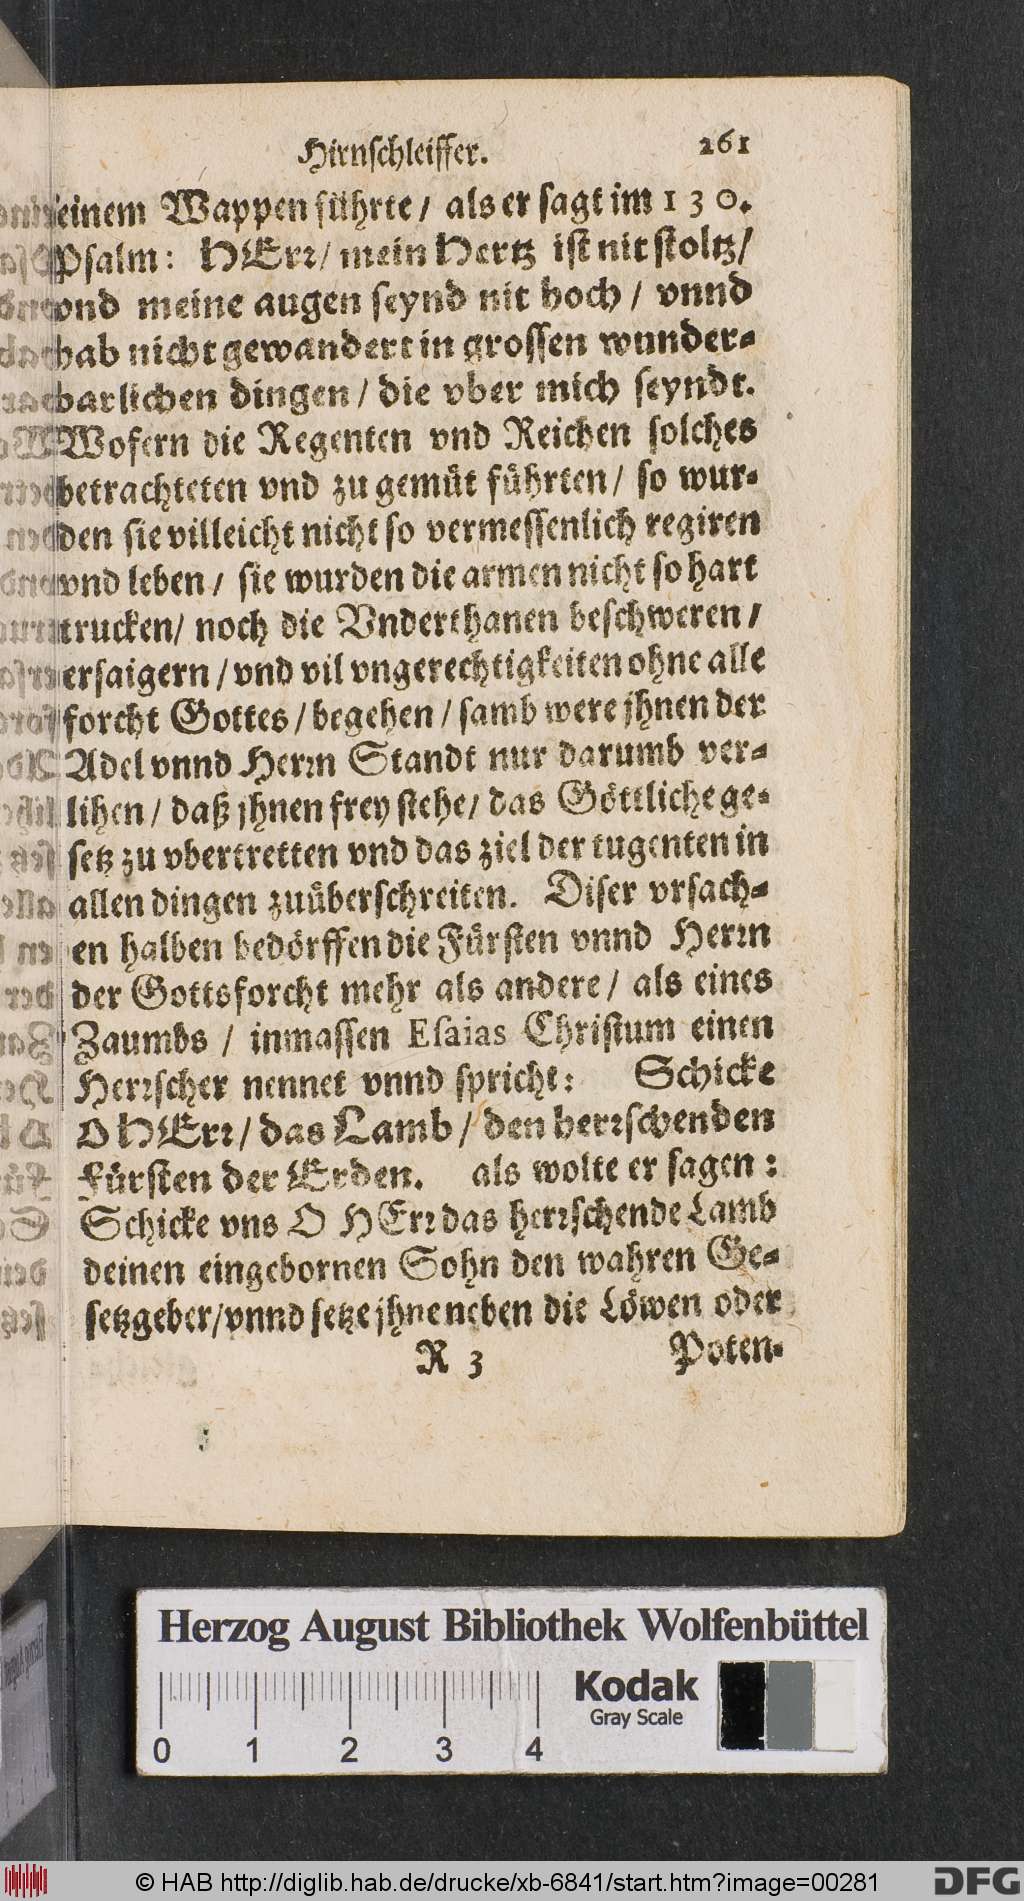 Hirnschleiffer. 261
einem Wappen führte / als er sagt im 130.
Psalm: HErr / mein Hertz ist nit stoltz /
vnd meine augen seynd nit hoch / vnnd
hab nicht gewandert in grossen wunder-
barlichen dingen / die vber mich seyndt.
Wofern die Regenten vnd Reichen solches
betrachteten vnd zu gemüt führten / so wur-
den sie villeicht nicht so vermessenlich regiren
vnd leben / sie wurden die armen nicht so hart
trucken / noch die Vnderthanen beschweren /
ersaigern / vnd vil vngerechtigkeiten ohne alle
forcht Gottes / begehen / samb were jhnen der
Adel vnnd Herrn Standt nur darumb ver-
lihen / daß jhnen frey stehe / das Göttliche ge-
setz zu vbertretten vnd das ziel der tugenten in
allen dingen zuüberschreiten. Diser vrsach-
en halben bedörffen die Fürsten vnnd Herrn
der Gottsforcht mehr als andere / als eines
Zaumbs / inmassen Esaias Christum einen
Herrscher nennet vnnd spricht: Schicke
O HErr / das Lamb / den herrschenden
Fürsten der Erden. als wolte er sagen:
Schicke vns O HErr das herrschende Lamb
deinen eingebornen Sohn den wahren Ge-
setzgeber / vnnd setze jhne neben die Löwen oder
R 3 Poten-
Herzog August Bibliothek Wolfenbüttel
Kodak
Gray Scale
0 1 2 3 4
© HAB http://diglib.hab.de/drucke/xb-6841/start.htm?image=00281
DFG